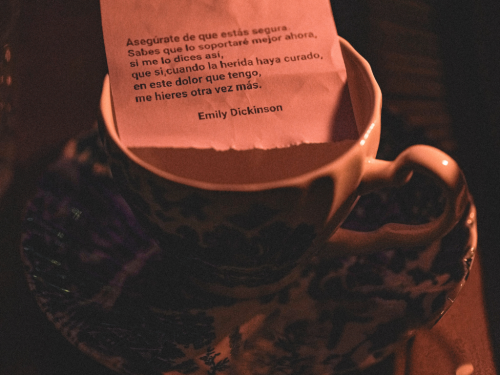 Asegúrate de que estás segura.
Sabes que lo soportaré mejor ahora,
si me lo dices así,
que si,cuando la herida haya curado,
en este dolor que tengo,
me hieres otra vez más.
Emily Dickinson